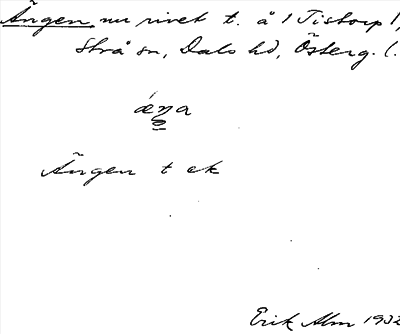 Ängen nu rivet t. å 1 Tistorp 1,
Strå sn, Dals hd, Österg. l.
ǽŋa
Ängen t ek
Erik Alm 1932